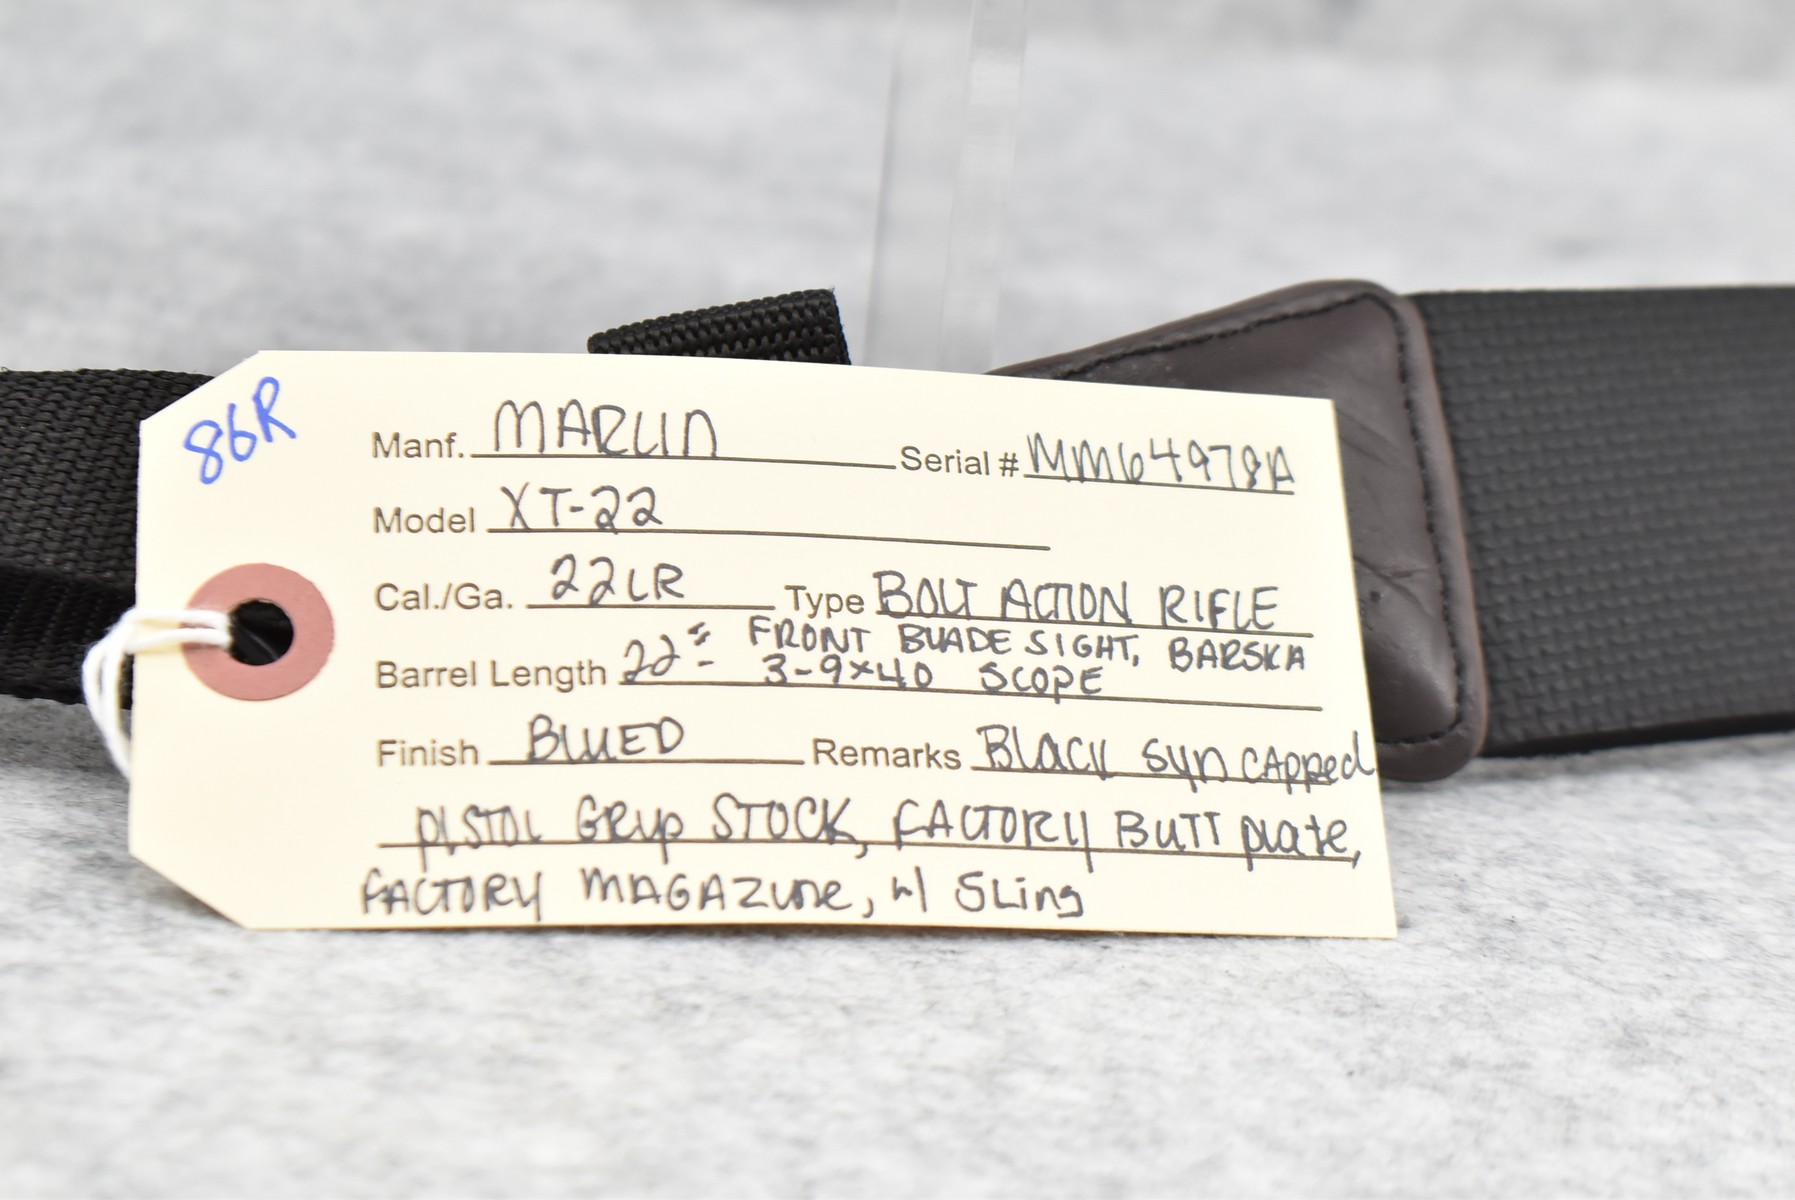 86R
Manf. MARLIN Serial # MM64978A
Model XT-22
Cal./Ga. 22LR Type BOLT ACTION RIFLE
Barrel Length 22" - FRONT BLADE SIGHT, BARSKA
3-9x40 SCOPE
Finish BLUED Remarks BLACK SYN CAPPED
PISTOL GRIP STOCK, FACTORY BUTT PLATE,
FACTORY MAGAZINE, w/ SLING